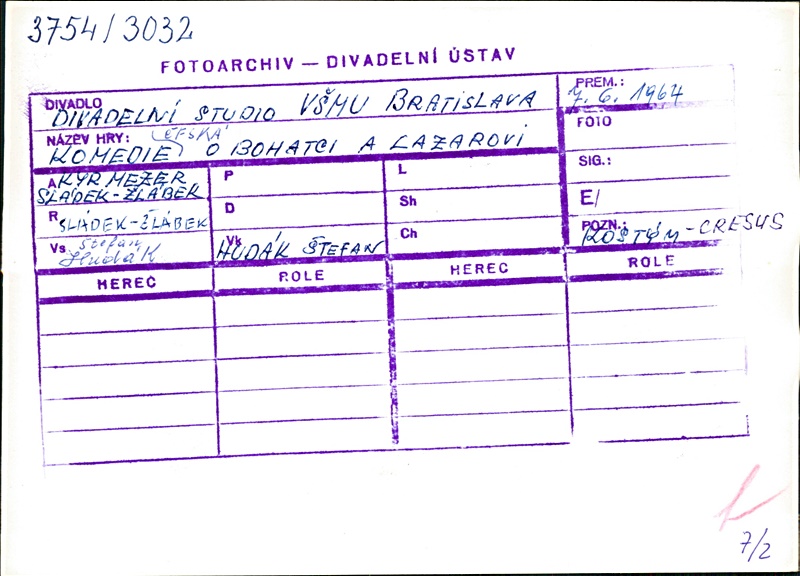 3754/3032
FOTOARCHIV — DIVADELNÍ ÚSTAV
DIVADLO DIVADELNÍ STUDIO VŠMU BRATISLAVA
PREM.: 7. 6. 1964
NÁZEV HRY: KOMEDIE ČEŠSKÁ O BOHATCI A LAZAROVI
FOTO
A KYRMEZER
SLÁDEK-ŽLÁBEK
P
L
SIG.:
R SLÁDEK-ŽLÁBEK
D
Sh
E/
Vs Štefan Hudák
Vk HUDÁK ŠTEFAN
Ch
POZN.: KOŠTÝM-CRESUS
HEREC ROLE HEREC ROLE
7/2